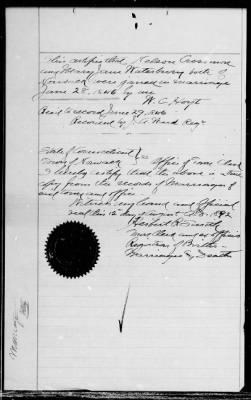 This certifies that Nelson Crossman
and Mary Jane Waterbury both of
Norwalk were joined in marriage
June 28, 1846 by me
W. C. Hoyt
Rec'd to record June 29, 1846
Recorded by Ward Regr
State of Connecticut }
Town of Norwalk } ss Office of Town Clerk
I hereby certify that the above is a true
copy from the records of Marriages of
said town and office
Witness my hand and official
seal this 12 day of August A.D. 1892
Herbert R. Smith
Town Clerk and ex officio
Registrar of Births
Marriages & Deaths
Marriage